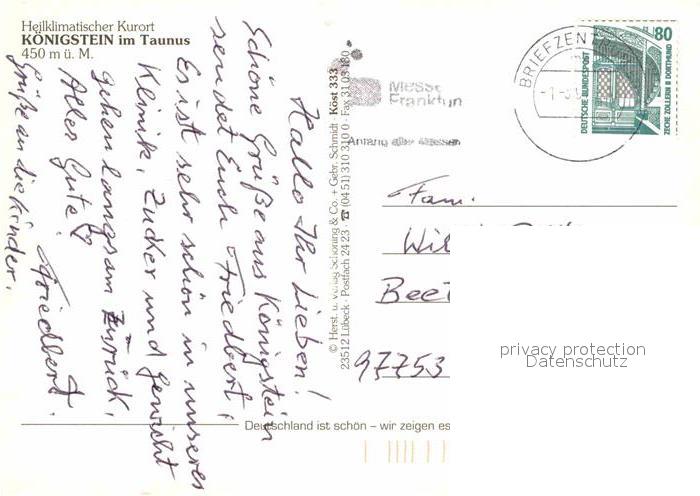 Heilklimatischer Kurort
KÖNIGSTEIN im Taunus
450 m ü. M.
Hallo Ihr Lieben!
Schöne Grüße aus Königstein
sendet Euch Friedbert,
Es ist sehr schön in unserer
Klinik, Zucker und Gewicht
gehen langsam zurück,
Alles Gute!
Friedbert.
Grüße an die Kinder.
© Herst. u. Verlag Schöning & Co. + Gebr. Schmidt · Köst 333
23512 Lübeck · Postfach 24 23 · ☎ (04 51) 310 310 0 · Fax 31 03 180
Messe
Frankfurt
BRIEFZEN
80
DEUTSCHE BUNDESPOST
ZECHE ZOLLERN II DORTMUND
Fam.
Wil
Beet
97753
privacy protection
Datenschutz
Deutschland ist schön – wir zeigen es